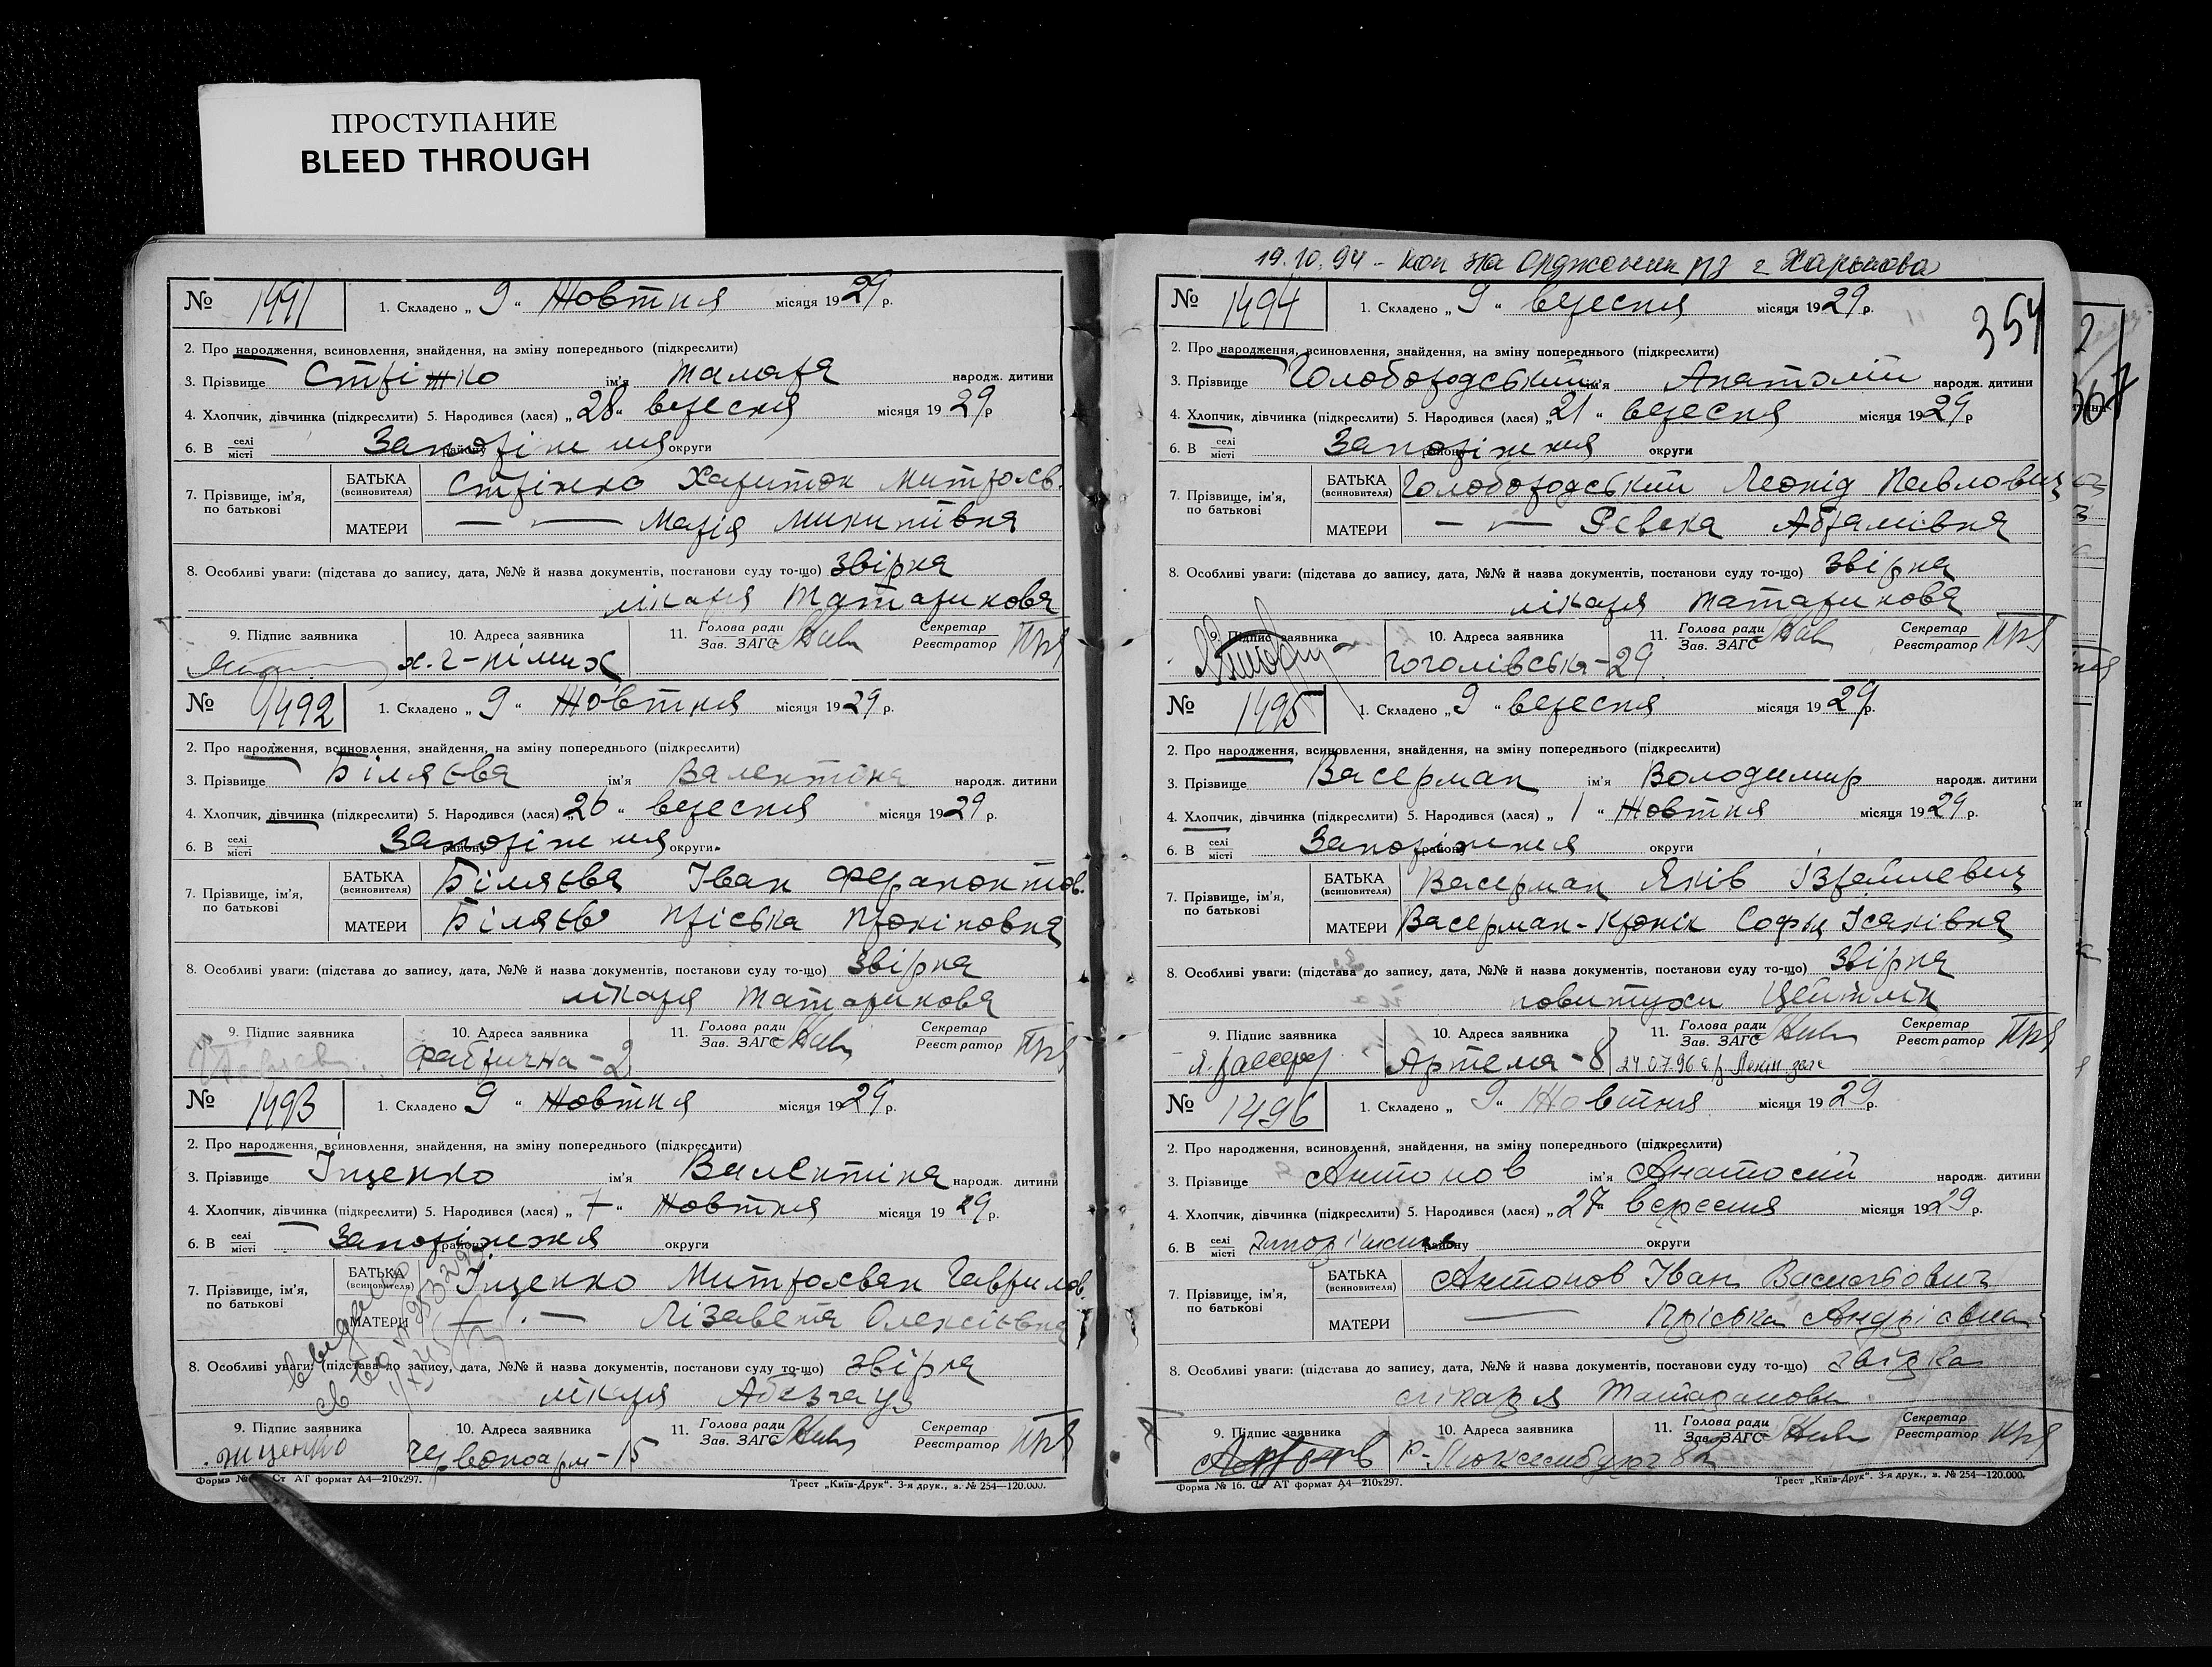 ПРОСТУПАНИЕ
BLEED THROUGH
№ 1491 1. Складено „ 9 “ Жовтня місяця 1929 р.
2. Про народження, всиновлення, знайдення, на зміну попереднього (підкреслити)
3. Прізвище Стріжко ім'я Тамара народж. дитини
4. Хлопчик, дівчинка (підкреслити) 5. Народився (лася) „ 28 “ вересня місяця 1929 р
6. В селі місті Запоріжжя району округи
7. Прізвище, ім'я, по батькові
БАТЬКА (всиновителя) Стріжко Харитон Митрофов.
МАТЕРИ — — Марія Микитівна
8. Особливі уваги: (підстава до запису, дата, №№ й назва документів, постанови суду то-що) Звірка
лікаря Татаринова
9. Підпис заявника 10. Адреса заявника 11. Голова ради Зав. ЗАГС Секретар Реєстратор
№ 1492 1. Складено „ 9 “ Жовтня місяця 1929 р.
2. Про народження, всиновлення, знайдення, на зміну попереднього (підкреслити)
3. Прізвище Біляєва ім'я Валентина народж. дитини
4. Хлопчик, дівчинка (підкреслити) 5. Народився (лася) 26 “ вересня місяця 1929 р.
6. В селі місті Запоріжжя району округи.
7. Прізвище, ім'я, по батькові
БАТЬКА (всиновителя) Біляєва Іван Ферапонтов.
МАТЕРИ Біляєв Пріська Прокіповна
8. Особливі уваги: (підстава до запису, дата, №№ й назва документів, постанови суду то-що) Звірка
лікаря Татаринова
9. Підпис заявника 10. Адреса заявника 11. Голова ради Зав. ЗАГС Секретар Реєстратор
Фабрична - 2
№ 1493 1. Складено 9 “ Жовтня місяця 1929 р.
2. Про народження, всиновлення, знайдення, на зміну попереднього (підкреслити)
3. Прізвище Іщенко ім'я Валентіна народж. дитини
4. Хлопчик, дівчинка (підкреслити) 5. Народився (лася) „ 7 “ Жовтня місяця 1929 р.
6. В селі місті Запоріжжя району округи
7. Прізвище, ім'я, по батькові
БАТЬКА (всиновителя) Іщенко Митрофан Гаврилов.
МАТЕРИ — . — Лізавета Олексієвна
8. Особливі уваги: (підстава до запису, дата, №№ й назва документів, постанови суду то-що) звірка
лікаря
9. Підпис заявника 10. Адреса заявника 11. Голова ради Зав. ЗАГС Секретар Реєстратор
Іщенко Червоноарм - 15
Форма № Ст АТ формат А4—210х297. Трест „Київ-Друк“. 3-я друк., з. № 254—120.000.
19.10.94 - коп на Орджоник рз г Харькова
354
№ 1494 1. Складено „ 9 “ вересня місяця 1929 р.
2. Про народження, всиновлення, знайдення, на зміну попереднього (підкреслити)
3. Прізвище Голобородський ім'я Анатолій народж. дитини
4. Хлопчик, дівчинка (підкреслити) 5. Народився (лася) „ 21 “ вересня місяця 1929 р
6. В селі місті Запоріжжя району округи
7. Прізвище, ім'я, по батькові
БАТЬКА (всиновителя) Голобородський Леонід Павлович
МАТЕРИ — — Ревека Абрамівна
8. Особливі уваги: (підстава до запису, дата, №№ й назва документів, постанови суду то-що) Звірка
лікаря Татаринова
9. Підпис заявника 10. Адреса заявника 11. Голова ради Зав. ЗАГС Секретар Реєстратор
Гоголівська - 29
№ 1495 1. Складено „ 9 “ вересня місяця 1929 р.
2. Про народження, всиновлення, знайдення, на зміну попереднього (підкреслити)
3. Прізвище Васерман ім'я Володимир народж. дитини
4. Хлопчик, дівчинка (підкреслити) 5. Народився (лася) „ 1 “ Жовтня місяця 1929 р.
6. В селі місті Запоріжжя району округи
7. Прізвище, ім'я, по батькові
БАТЬКА (всиновителя) Васерман Яків Ізраілевич
МАТЕРИ Васерман-Кронік Софія Ісаківна
8. Особливі уваги: (підстава до запису, дата, №№ й назва документів, постанови суду то-що) Звірка
повитухи Цейтлін
9. Підпис заявника 10. Адреса заявника 11. Голова ради Зав. ЗАГС Секретар Реєстратор
Артема - 8 24.07.96
№ 1496 1. Складено „ 9 “ Жовтня місяця 1929 р.
2. Про народження, всиновлення, знайдення, на зміну попереднього (підкреслити)
3. Прізвище Антонов ім'я Анатолій народж. дитини
4. Хлопчик, дівчинка (підкреслити) 5. Народився (лася) „ 27 “ вересня місяця 1929 р.
6. В селі місті Запоріжжя району округи
7. Прізвище, ім'я, по батькові
БАТЬКА (всиновителя) Антонов Іван Васильович
МАТЕРИ — Пріська Андрієвна
8. Особливі уваги: (підстава до запису, дата, №№ й назва документів, постанови суду то-що) звірка
лікаря Татаринова
9. Підпис заявника 10. Адреса заявника 11. Голова ради Зав. ЗАГС Секретар Реєстратор
Антонов Р-Люксембург 82
Форма № 16. Ст АТ формат А4—210х297. Трест „Київ-Друк“. 3-я друк., з. № 254—120.000.